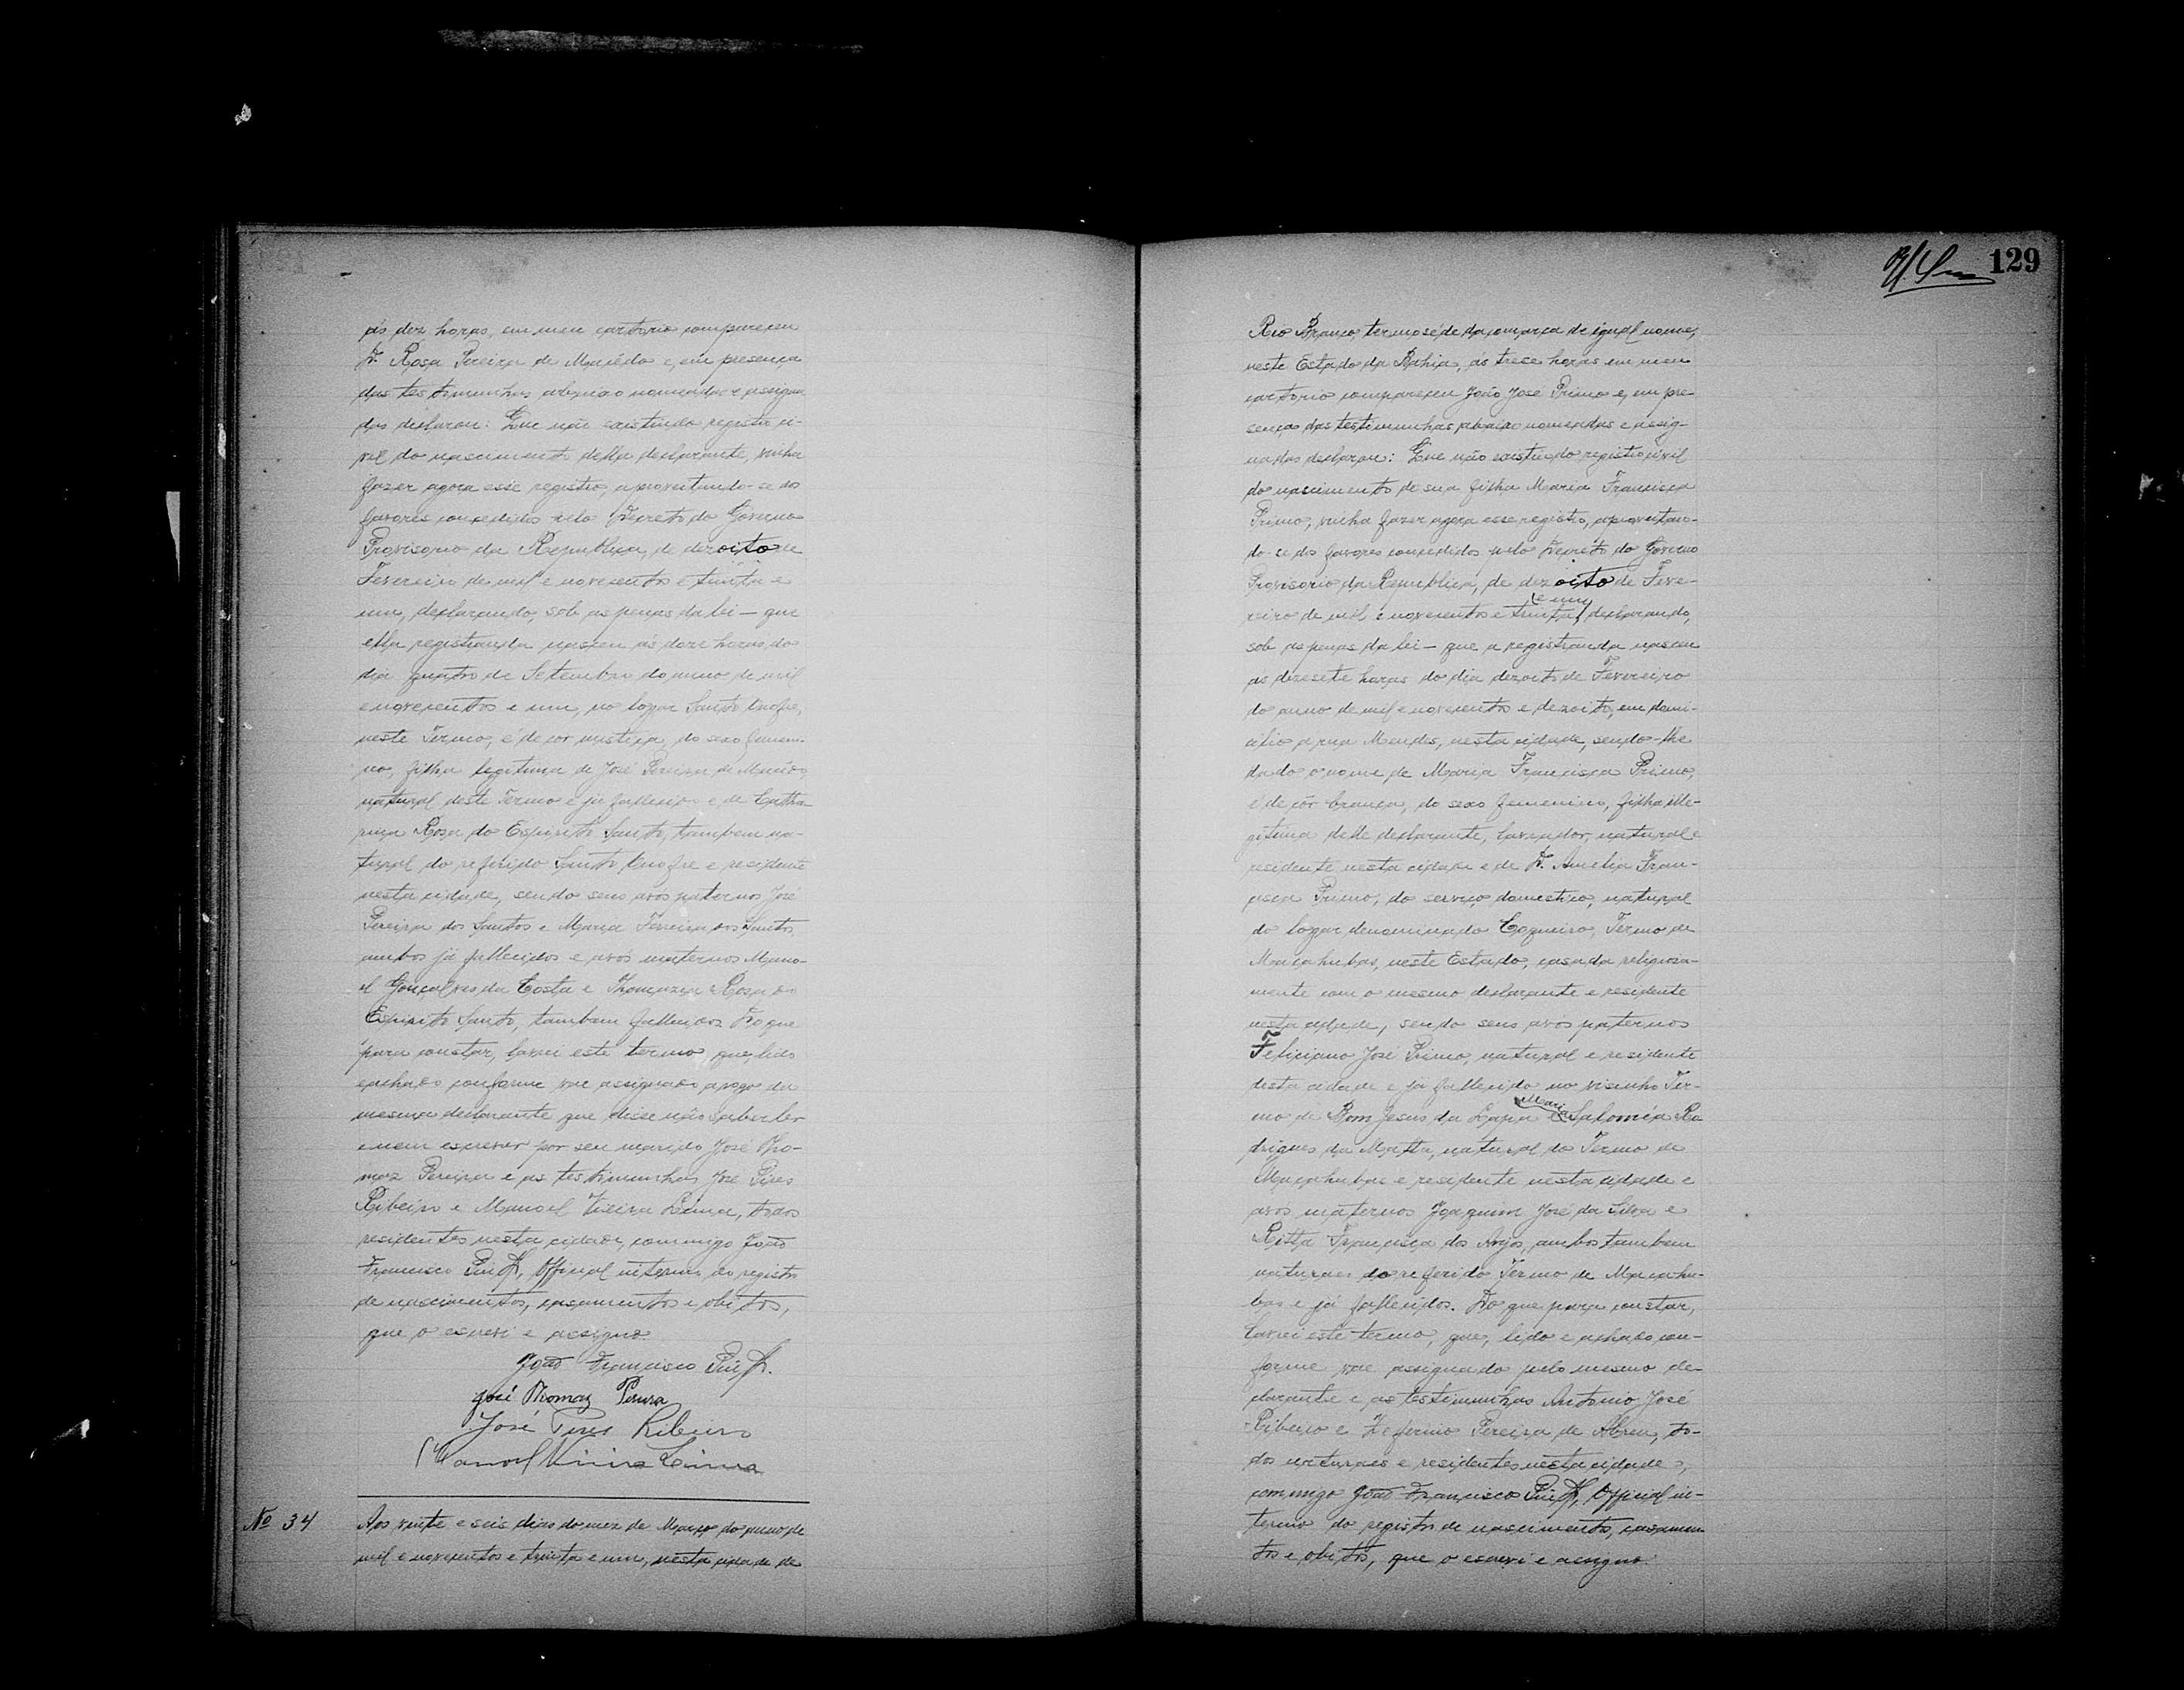 ás dez horas, em meu cartorio compareceu
D. Rosa Pereira de Macêdo e, em presença
das testimunhas abaixo nomeadas e assigna
das declarou: Que não existindo registro ci-
vil do nascimento della declarante, vinha
fazer agora esse registro, aproveitando-se dos
favores concedidos pelo Decreto do Governo
Provisorio da Republica, de dezoito de
Fevereiro de mil e novecentos e trinta e
um, declarando, sob as penas da lei — que
ella registranda nasceu ás doze horas do
dia quatro de Setembro do anno de mil
e novecentos e um, no logar Santo Onofre,
neste Termo, é de cor mestiça, do sexo femeni-
no, filha legitima de José Pereira de Macêdo,
natural deste Termo e já fallecido e de Catha-
rina Rosa do Espirito Santo, tambem na-
tural do referido Santo Onofre e residente
nesta cidade, sendo seus avós paternos José
Pereira dos Santos e Maria Ferreira dos Santos,
ambos já fallecidos e avós maternos Mano-
el Gonçalves da Costa e Thomazia Rosa do
Espirito Santo, tambem fallecidos. Do que
para constar, lavrei este termo, que, lido
e achado conforme vae assignado a rogo da
mesma declarante que disse não saber ler
e nem escrever por seu marido José Tho-
maz Pereira e as testimunhas José Pires
Ribeiro e Manoel Vieira Lima, todos
residentes nesta cidade, commigo João
Francisco Official interino do registro
de nascimentos, casamentos e obitos,
que o escrevi e assigno.
João Francisco
José Thomaz Pereira
José Pires Ribeiro
Manoel Vieira Lima
Nº 34 Aos vinte e seis dias do mez de Março do anno de
mil e novecentos e trinta e um, nesta cidade de
129
Rio Branco, termo séde da comarca de igual nome,
neste Estado da Bahia, ás trese horas em meu
cartorio compareceu João José Primo e, em pre-
sença das testimunhas abaixo nomeadas e assig-
nadas declarou: Que não existindo registro civil
do nascimento de sua filha Maria Francisca
Primo, vinha fazer agora esse registro, aproveitan-
do-se dos favores concedidos pelo Decreto do Governo
Provisorio da Republica, de dezoito de Feve-
reiro de mil e novecentos e trinta e um, declarando,
sob as penas da lei — que a registranda nasceu
as desesete horas do dia dezoito de Fevereiro
do anno de mil e novecentos e dezoito, em domi-
cilio a rua Mendes, nesta cidade, sendo-lhe
dado o nome de Maria Francisca Primo,
é de côr branca, do sexo femenino, filha ille-
gitima delle declarante, lavrador, natural e
residente nesta cidade e de D. Amelia Fran-
cisca Primo, do serviço domestico, natural
do logar denominado Coqueiro, Termo de
Macahubas, neste Estado, casada religiosa-
mente com o mesmo declarante e residente
nesta cidade, sendo seus avós paternos
Feliciano José Primo, natural e residente
desta cidade e já fallecido no visinho Ter-
mo de Bom Jesus da Lapa e Maria Saloméa Ro
drigues da Matta, natural do Termo de
Macahubas e residente nesta cidade e
avós maternos Joaquim José da Silva e
Ritta Francisca dos Anjos, ambos tambem
naturaes do referido Termo de Macahu-
bas e já fallecidos. Do que para constar,
lavrei este termo, que, lido e achado con-
forme vae assignado pelo mesmo de-
clarante e as testimunhas Antonio José
Ribeiro e Zeferino Pereira de Abreu, to-
dos naturaes e residentes nesta cidade,
commigo João Francisco Official in-
terino do registro de nascimentos, casamen
tos e obitos, que o escrevi e assigno.